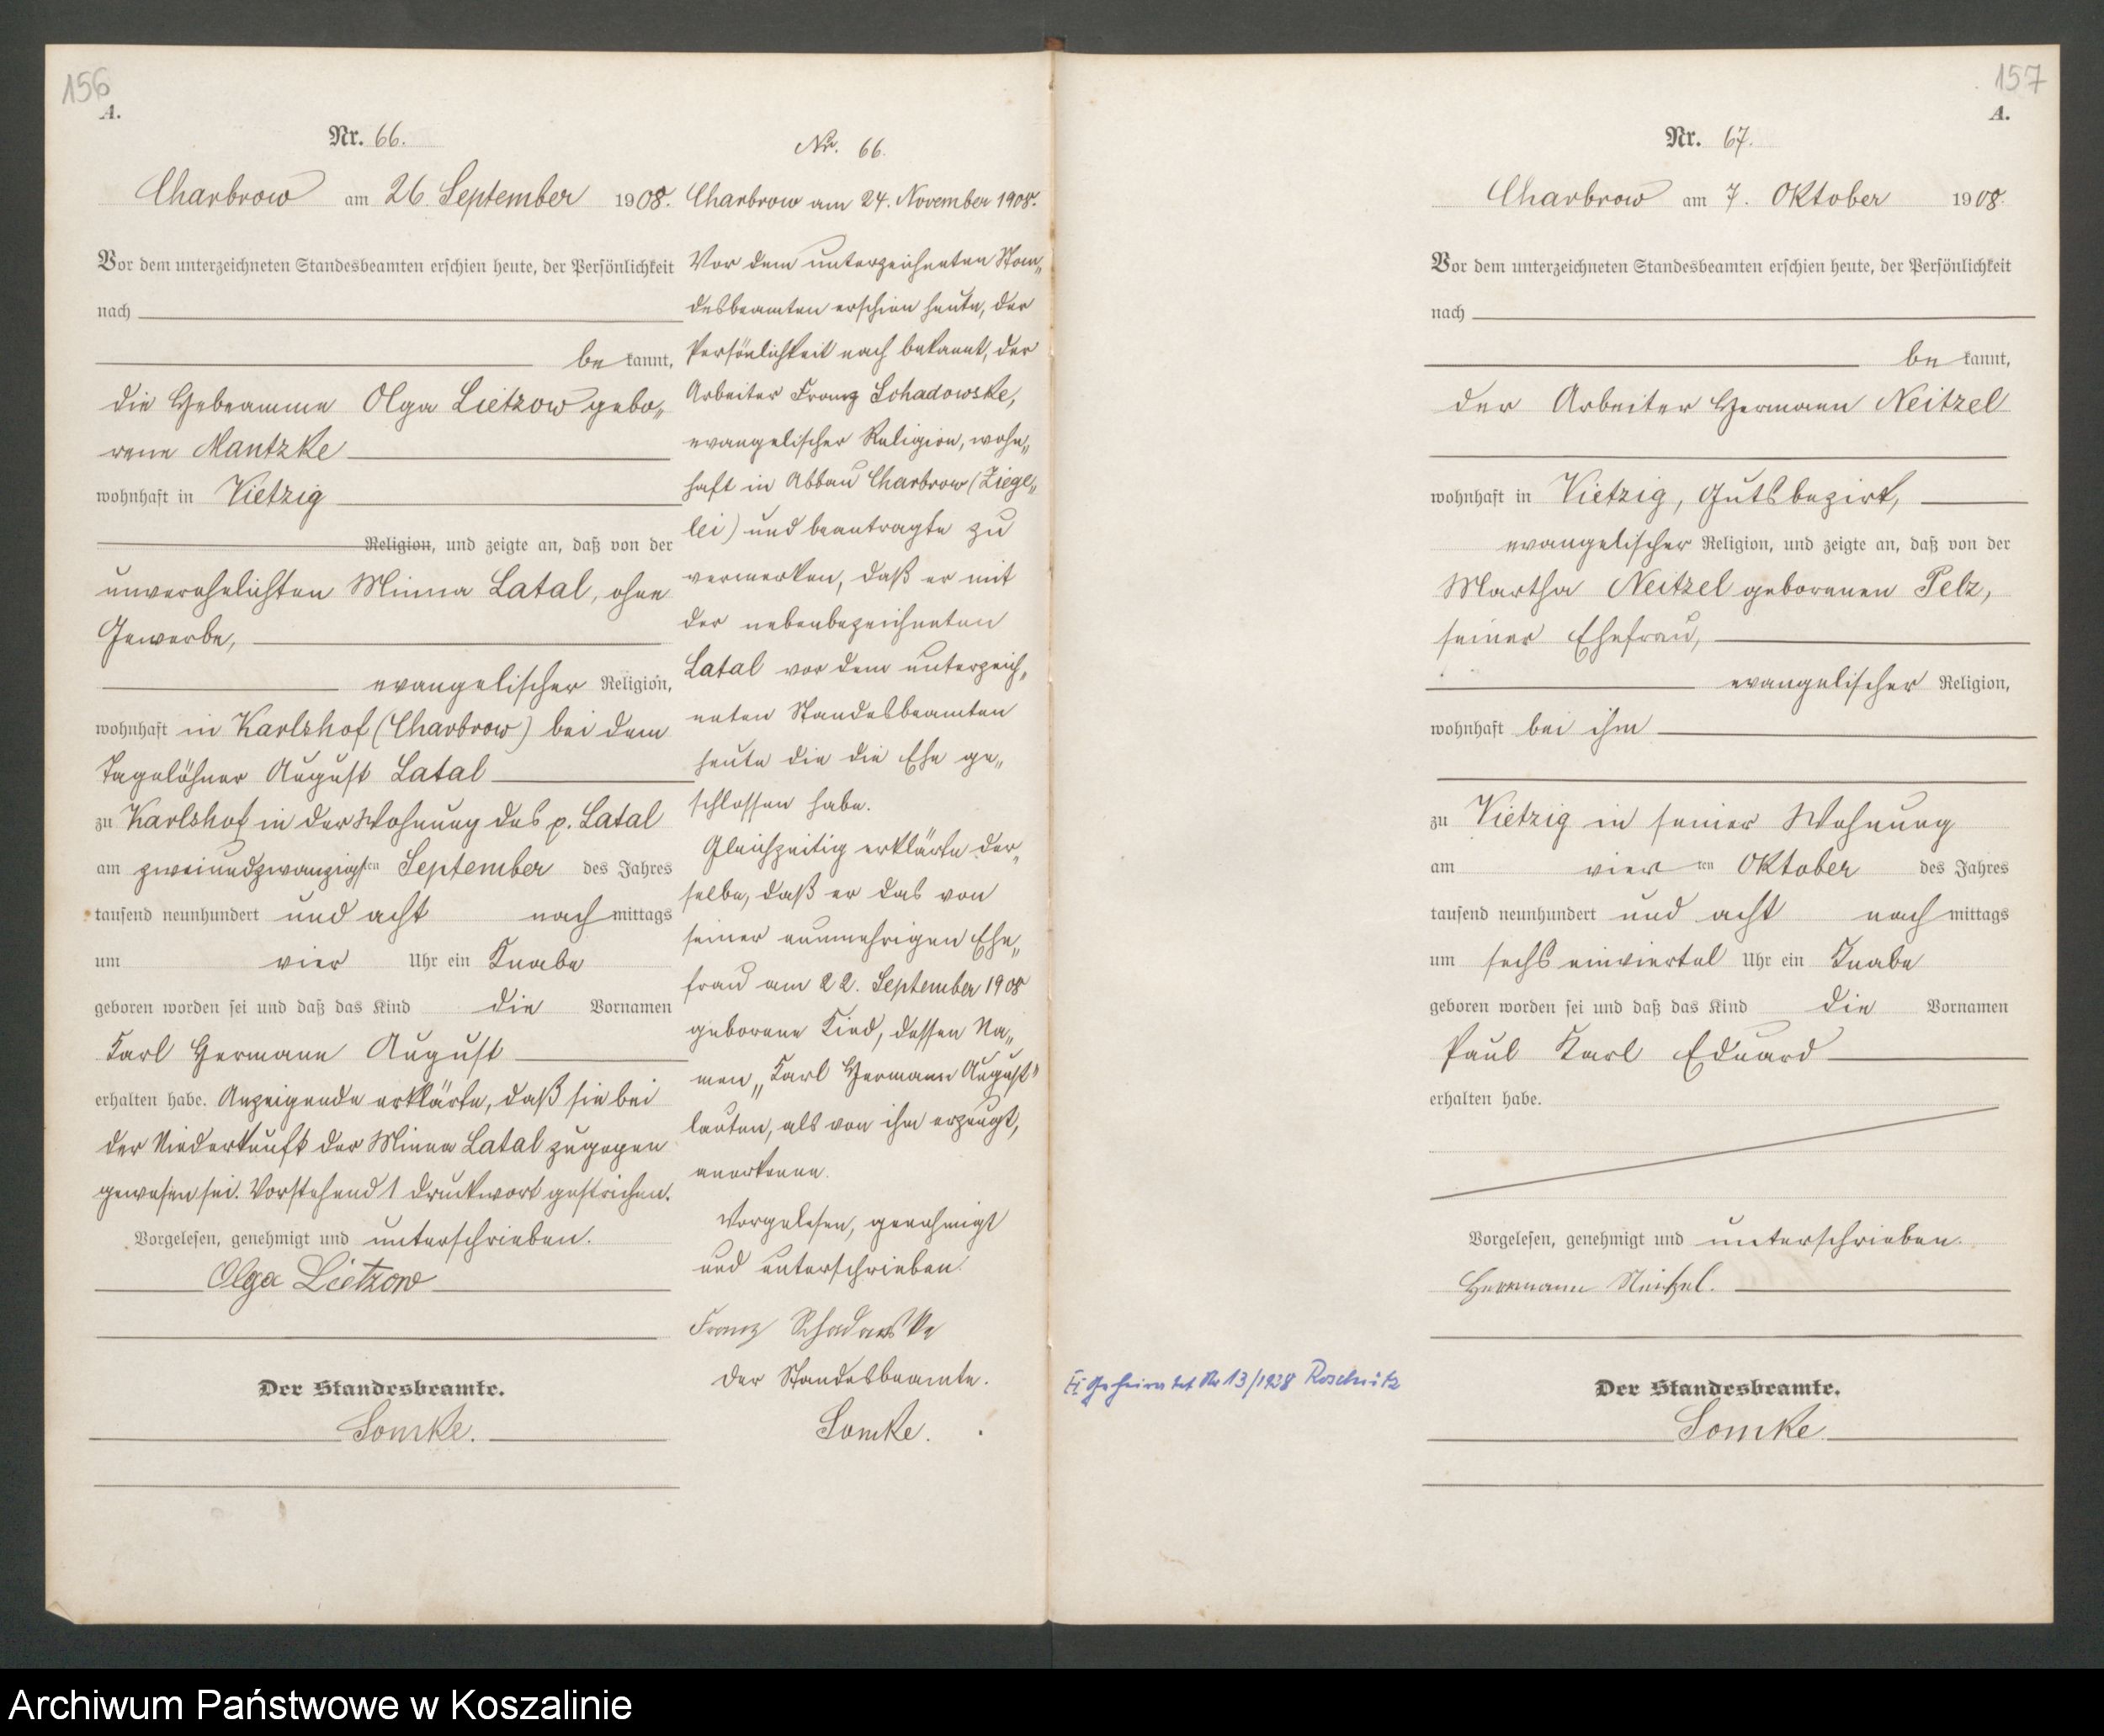 156
A.
Nr. 66.
Charbrow am 26. September 1908.
Vor dem unterzeichneten Standesbeamten erschien heute, der Persönlichkeit
nach
be kannt,
die Hebeamme Olga Lietzow gebo„
rene Mantzke
wohnhaft in Vietzig
Religion, und zeigte an, daß von der
unverehelichten Minna Latal, ohne
Gewerbe,
evangelischer Religion,
wohnhaft in Karlshof (Charbrow) bei dem
Tagelöhner August Latal
zu Karlshof in der Wohnung des p. Latal
am zweiundzwanzigsten September des Jahres
tausend neunhundert und acht nach mittags
um vier Uhr ein Knabe
geboren worden sei und daß das Kind die Vornamen
Karl Hermann August
erhalten habe. Anzeigende erklärte, daß sie bei
der Niederkunft der Minna Latal zugegen
gewesen sei. Vorstehend 1 Druckwort gestrichen.
Vorgelesen, genehmigt und unterschrieben.
Olga Lietzow
Der Standesbeamte.
Lomke.
Nr. 66.
Charbrow am 24. November 1908.
Vor dem unterzeichneten Stan„
desbeamten erschien heute, der
Persönlichkeit nach bekannt, der
Arbeiter Franz Schadowske,
evangelischer Religion, wohn„
haft in Abbau Charbrow (Ziege„
lei) und beantragte zu
vermerken, daß er mit
der nebenbezeichneten
Latal vor dem unterzeich„
neten Standesbeamten
heute die die Ehe ge„
schlossen habe.
Gleichzeitig erklärte der„
selbe, daß er das von
seiner nunmehrigen Ehe„
frau am 22. September 1908
geborene Kind, dessen Na„
men „Karl Hermann August"
lauten, als von ihm erzeugt,
anerkenne.
Vorgelesen, genehmigt
und unterschrieben.
Franz Schadowske
Der Standesbeamte.
Lomke.
157
A.
Nr. 67.
Charbrow am 7. Oktober 1908.
Vor dem unterzeichneten Standesbeamten erschien heute, der Persönlichkeit
nach
be kannt,
der Arbeiter Hermann Neitzel
wohnhaft in Vietzig, Gutsbezirk,
evangelischer Religion, und zeigte an, daß von der
Martha Neitzel geborenen Pelz,
seiner Ehefrau,
evangelischer Religion,
wohnhaft bei ihm
zu Vietzig in seiner Wohnung
am vier ten Oktober des Jahres
tausend neunhundert und acht nach mittags
um sechs einviertel Uhr ein Knabe
geboren worden sei und daß das Kind die Vornamen
Paul Karl Eduard
erhalten habe.
Vorgelesen, genehmigt und unterschrieben.
Herrmann Neitzel.
Geheiratet Nr 13/1938 Roschütz
Der Standesbeamte.
Lomke.
Archiwum Państwowe w Koszalinie